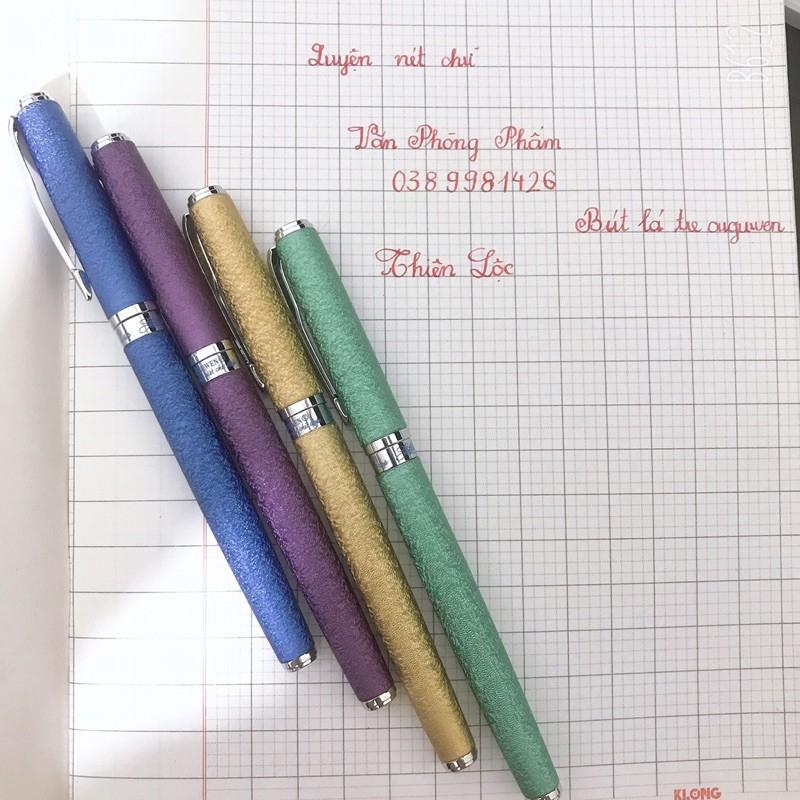 Luyện nét chữ
Văn Phòng Phẩm
038 9981426
Bút lá tre ouguwen
Thiên Lộc
KLONG
B612